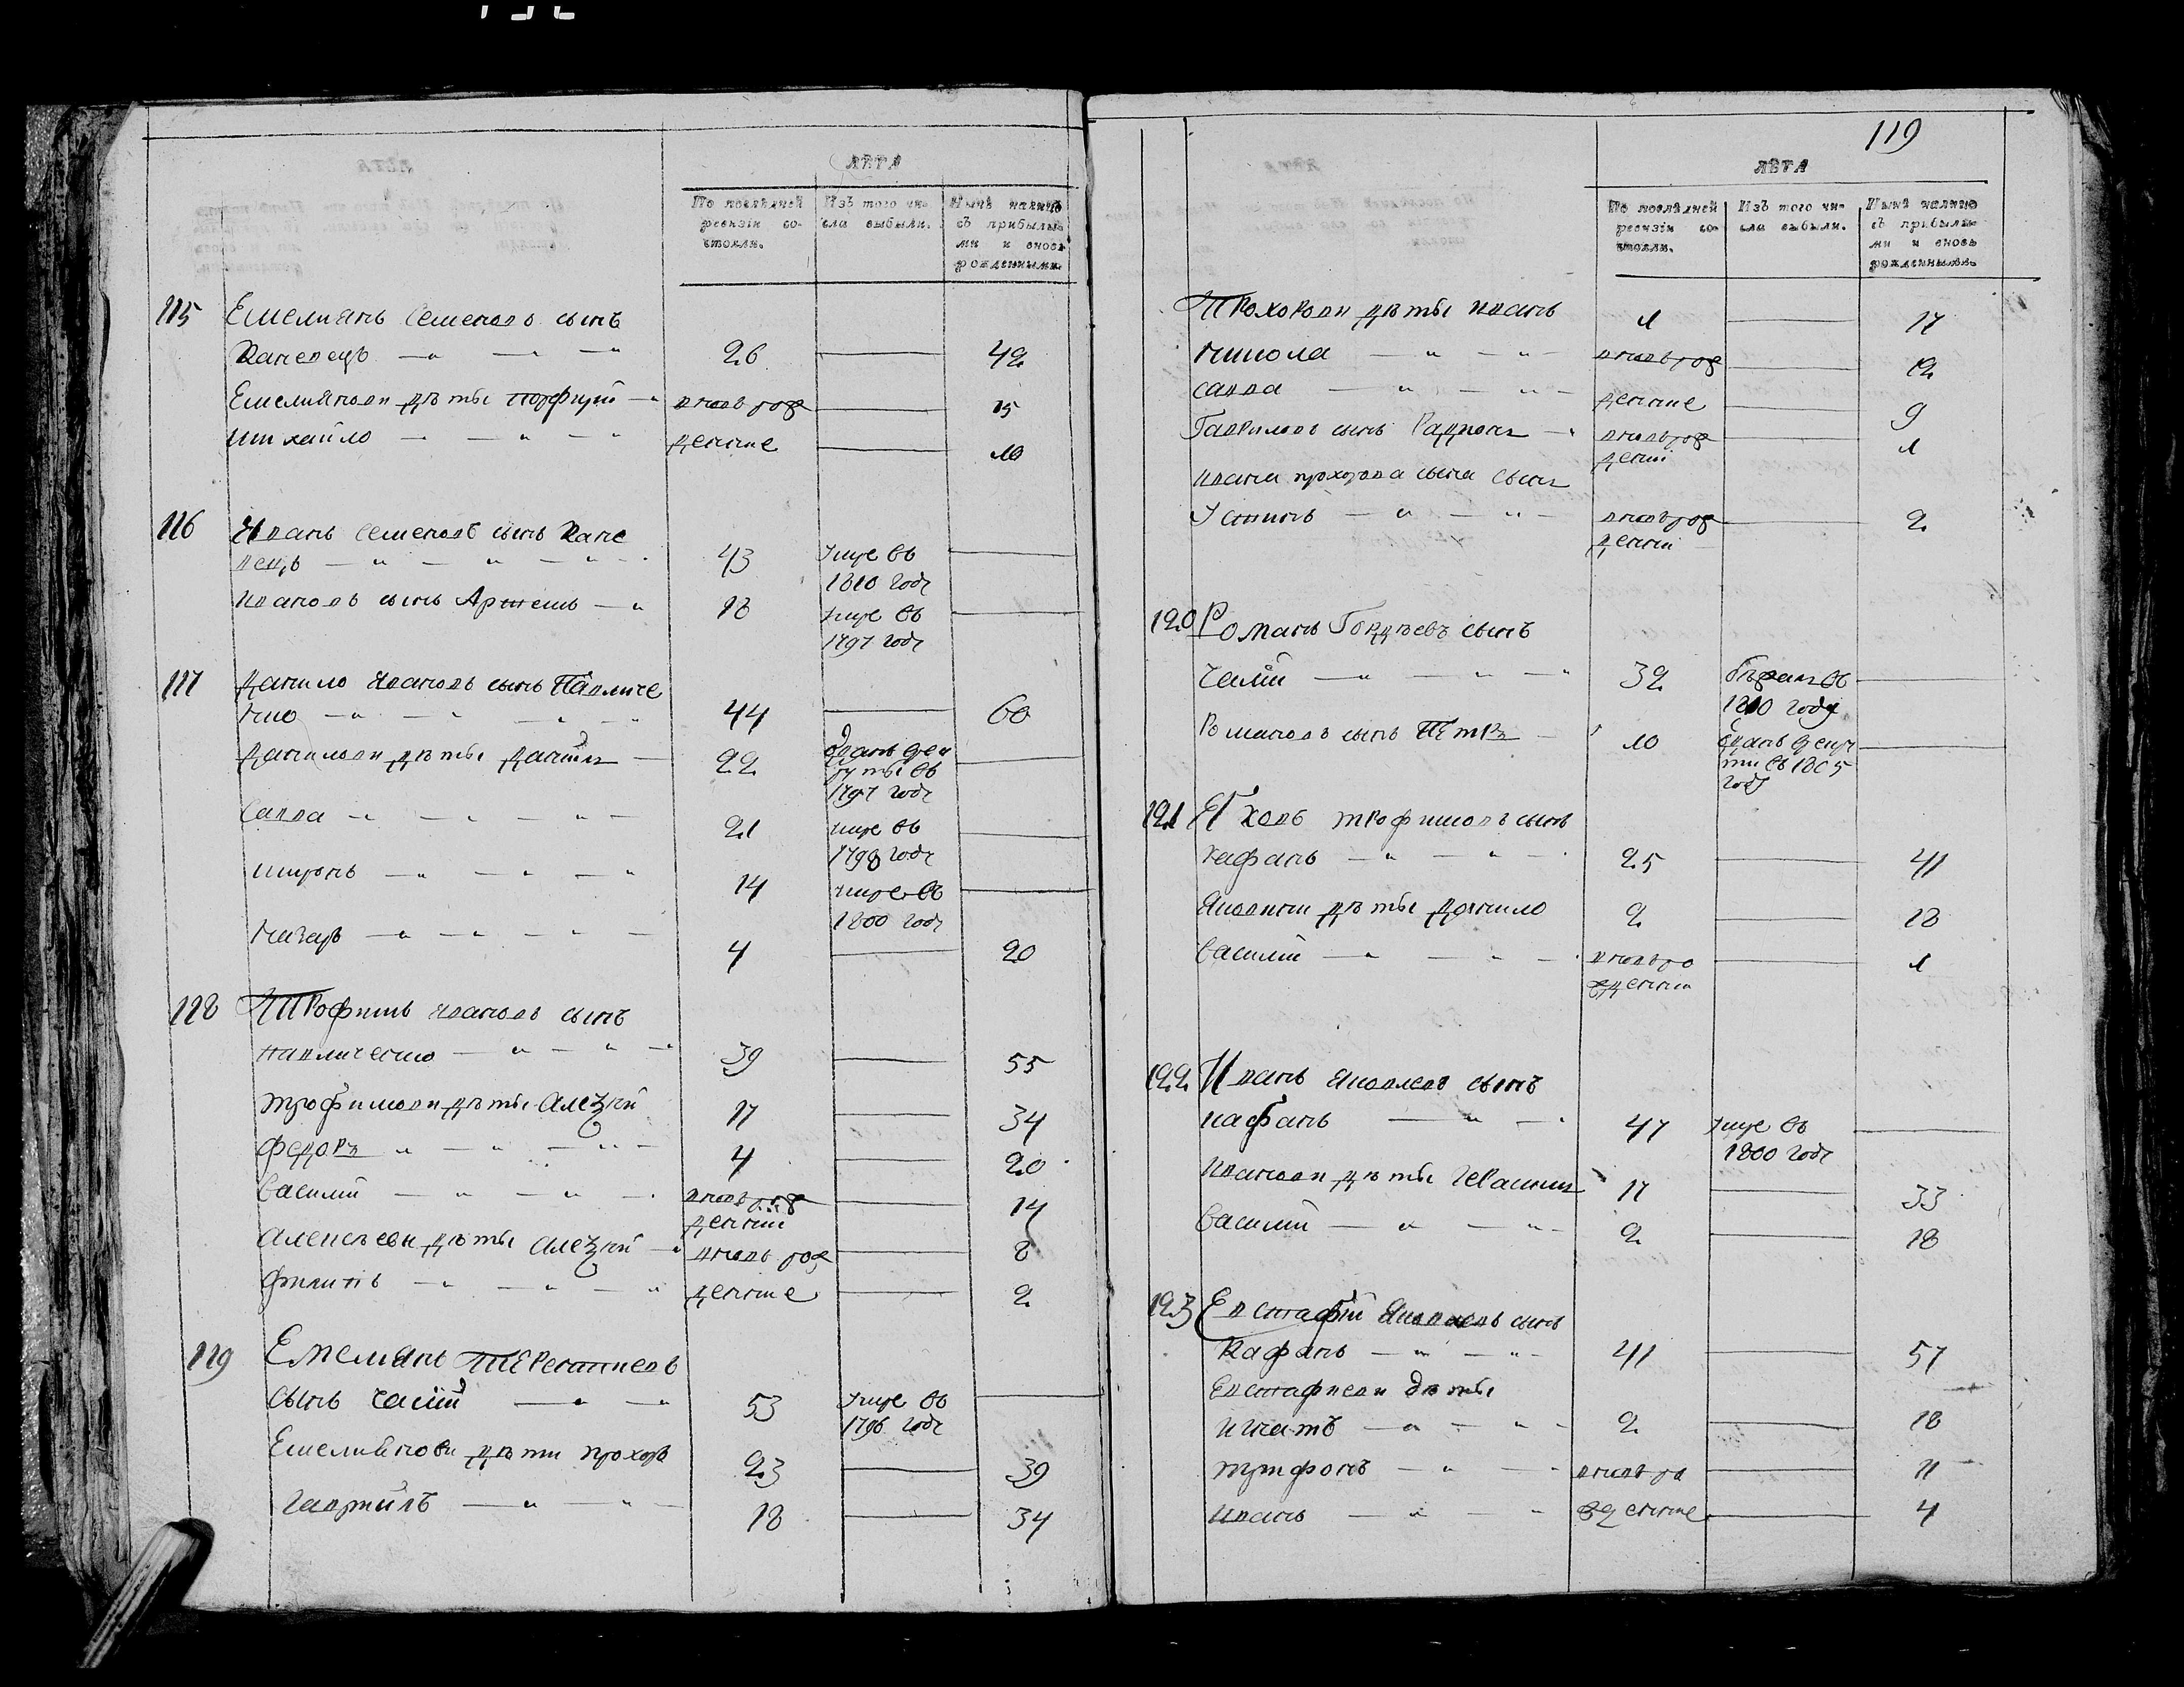 ЛѢТА
По послѣдней
ревизіи со-
стояли.
Изъ того чи-
сла выбыли.
Нынѣ налицо
съ прибылы-
ми и вновь
рожденными.
115 Емелиянъ Семеновъ сынъ
Каневецъ 26 42
Емелиянови дѣты Порфирій вновь рож 15
михайло денные 10
116 Иванъ Семеновъ сынъ Кане
вецъ 43 умре въ
1810 годѣ
Ивановъ сынъ Артемъ 18 умре въ
1797 годѣ
117 Данило Ивановъ сынъ Павличе
нко 44 60
Данилови дѣты
22
руты въ
1797 годѣ
Савва 21 умре въ
1798 годѣ
миронъ 14 умре въ
1800 годѣ
4 20
118 Трофимъ Ивановъ сынъ
павличенко 39 55
трофимови дѣты Алеѯѣй 17 34
федоръ 4 20
Василий вновь рож 14
денний
Алексѣеви дѣты Алеѯѣй вновь рож 8
филипъ денные 2
119 Емелиянъ
сынъ 53 умре въ
1796 годѣ
Емелиянови дѣти прохоръ 23 39
гавриилъ 18 34
119
ЛѢТА
По послѣдней
ревизіи со-
стояли.
Изъ того чи-
сла выбыли.
Нынѣ налицо
съ прибылы-
ми и вновь
рожденными.
Прохорови дѣты иванъ 1 17
никола вновь рож 12
савва денные 9
Гавриловъ сынъ Радионъ вновь рож 1
денний
ивана прохорова сына сынъ
Устинъ вновь рож 2
денний
120 Романъ Гордѣевъ сынъ
32 въ
1810 году
Романовъ сынъ Петръ 10
въ 1805
году
121 Яковъ трофимовъ сынъ
кафанъ 25 41
Яковини дѣты Данило 2 18
Василий вновь ро 1
жденни
122 Иванъ Яковлевъ сынъ
кафанъ 47 умре въ
1800 годѣ
Иванови дѣты Герасимъ 17 33
Василий 2 18
123 Евстафій Яковлевъ сынъ
Кафанъ 41 57
Евстафиеви дѣты
игнатъ 2 18
трифонъ вновь ро 11
иванъ жденные 4